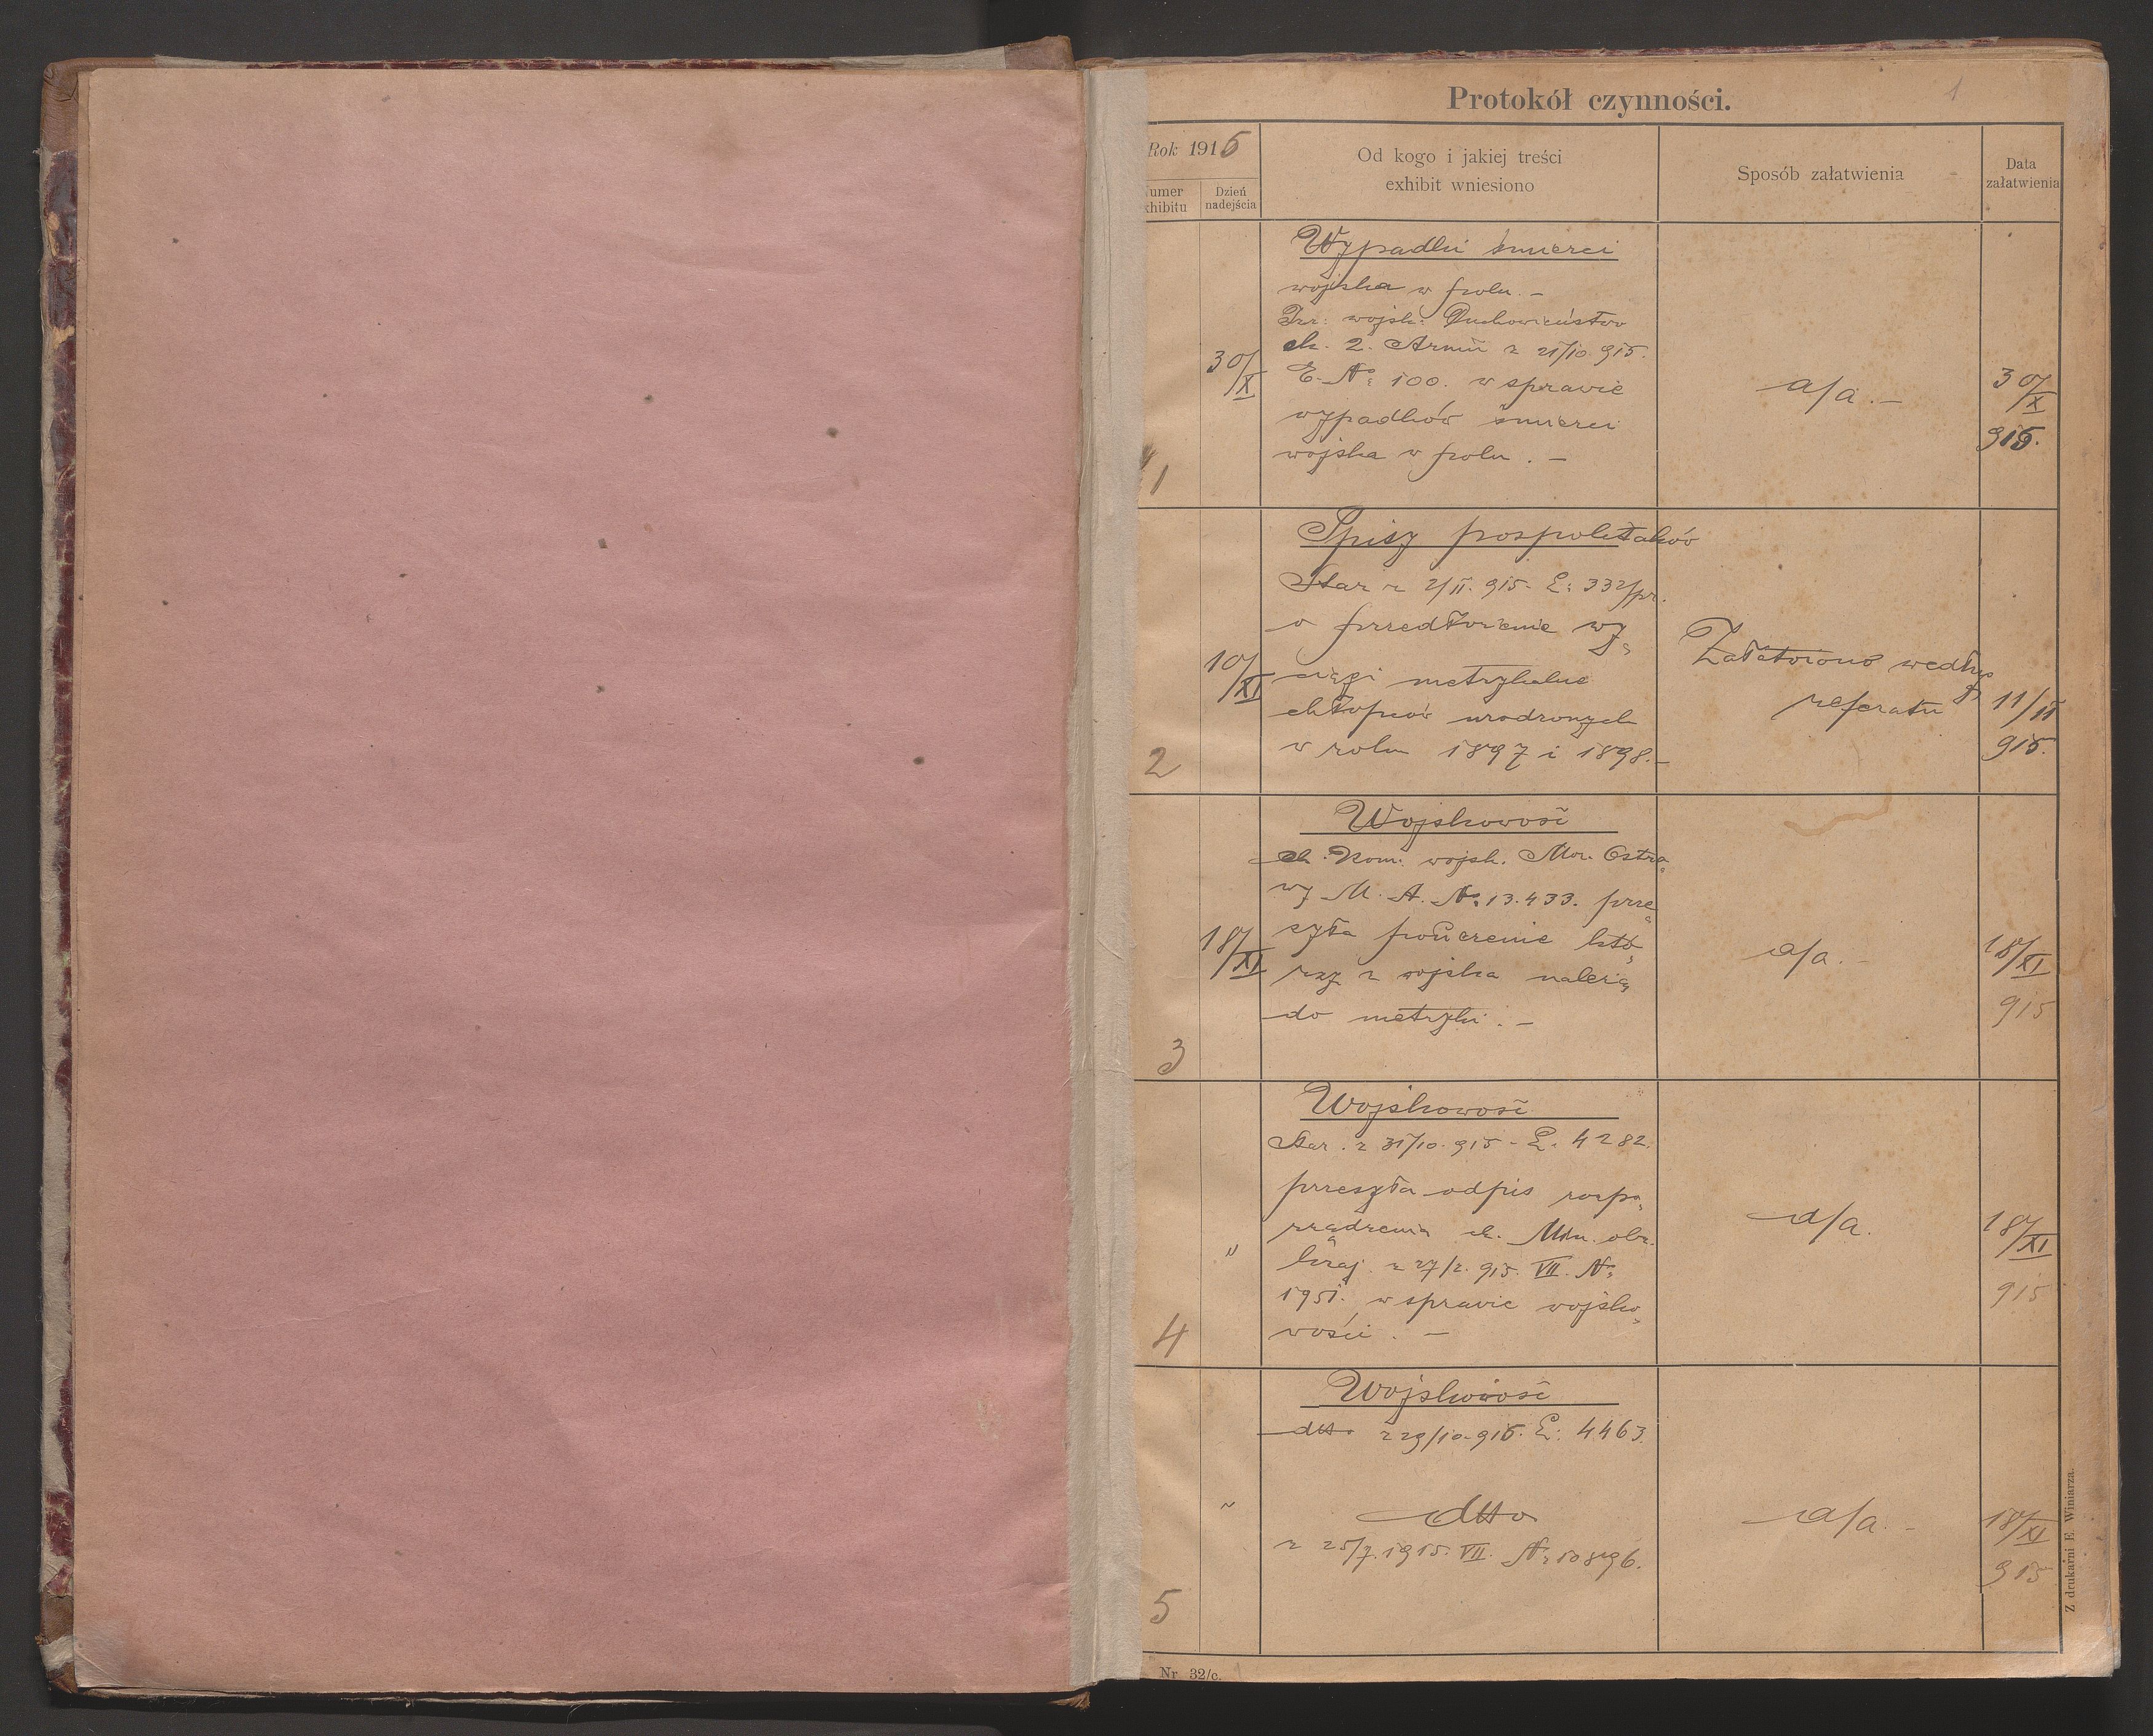 Protokół czynności.
1
Rok 1915
Numer exhibitu
Dzień nadejścia
Od kogo i jakiej treści
exhibit wniesiono
Sposób załatwienia
Data
załatwienia
1
30/X
Wypadki śmierci
wojska w polu. -
wojsk. Duchowieństwo
ck. 2. Armii z 21/10. 915.
E. No 100. w sprawie
wypadków śmierci
wojska w polu. -
a/a. -
30/X
915.
2
10/XI
Spisy pospolitaków
Star z 2/11. 915. L: 332/pr.
o przedłożenie wy-
ciągi metrykalne
chłopców urodzonych
w roku 1897 i 1898. -
Załatwiono według
referatu
11/11
915.
3
18/XI
Wojskowość
ck. Kom. wojsk. Mor. Ostra-
wy M. A. No 13.433. prze-
syła pouczenie któ-
rzy z wojska należą
do metryki. -
a/a. -
18/XI
915
4
"
Wojskowość
Star. z 31/10. 915 - L. 4282.
przesyła odpis rozpo-
rządzenia ck. Min. obr.
kraj. z 27/2. 915. VII. No
1951. w sprawie wojsko-
wości. -
a/a.
18/XI
915
5
"
Wojskowość
dtto z 29/10. 915. L: 4463.
dtto
z 25/7. 1915. VII. No 10896.
a/a. -
18/XI
915
Nr. 32/c.
Z drukarni E. Winiarza.